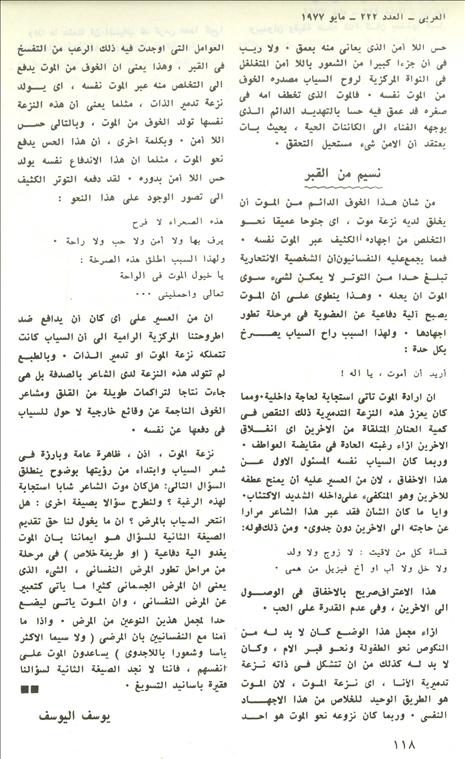 العربي – العدد ٢٢٢ – مايو ١٩٧٧
حس اللا أمن الذى يعانى منه بعمق • ولا ريب
فى أن جزءا كبيرا من الشعور باللا أمن المتغلغل
فى النواة المركزية لروح السياب مصدره الخوف
من الموت نفسه • فالموت الذى تخطف امه فى
صغره قد عمق فيه حسا بالتهديد الدائم الذى
يوجهه الفناء الى الكائنات الحية ، بحيث بات
يعتقد أن الامن شىء مستحيل التحقق •
نسيم من القبر
من شأن هذا الخوف الدائم من الموت أن
يخلق لديه نزعة موت ، اى جنوحا عميقا نحو
التخلص من اجهاده الكثيف عبر الموت نفسه •
فمما يجمع عليه النفسانيون أن الشخصية الانتحارية
تبلغ حدا من التوتر لا يمكن لشىء سوى
الموت ان يحله • وهذا ينطوى على أن الموت
يصبح آلية دفاعية عن العضوية فى مرحلة تطور
اجهادها • ولهذا السبب راح السياب يصرخ
بكل حدة :
أريد أن أموت ، يا اله !
ان ارادة الموت تاتى استجابة لحاجة داخلية • ومما
كان يعزز هذه النزعة التدميرية ذلك النقص فى
كمية الحنان المتلقاة من الاخرين اى انغلاق
الاخرين ازاء رغبته الحادة فى مقايضة العواطف •
وربما كان السياب نفسه المسئول الاول عن
هذا الاخفاق ، لان من العسير عليه أن يمنح عطفه
للاخرين وهو المنكفىء على داخله الشديد الاكتئاب •
وايا ما كان الشأن فقد عبر هذا الشاعر مرارا
عن حاجته الى الاخرين دون جدوى • ومن ذلك قوله:
قساة كل من لاقيت : لا زوج ولا ولد
ولا خل ولا أب أو أخ فيزيل من همى •
هذا الاعتراف صريح بالاخفاق فى الوصول
الى الاخرين ، وفى عدم القدرة على الحب •
ازاء مجمل هذا الوضع كان لا بد له من
النكوص نحو الطفولة ونحو قبر الام ، وكان
لا بد له كذلك من ان تتشكل فى ذاته نزعة
تدميرية الأنا ، اى نزعة الموت ، لان الموت
هو الطريق الوحيد للخلاص من هذا الاجهاد
النفسى • وربما كان نزوعه نحو الموت هو احد
العوامل التى أوجدت فيه ذلك الرعب من التفسخ
فى القبر ، وهذا يعنى ان الخوف من الموت يدفع
الى التخلص منه عبر الموت نفسه ، اى يولد
نزعة تدمير الذات ، مثلما يعنى أن هذه النزعة
نفسها تولد الخوف من الموت ، وبالتالى حس
اللا أمن • وبكلمة اخرى ، أن هذا الحس يدفع
نحو الموت ، مثلما ان هذا الاندفاع نفسه يولد
حس اللا أمن بدوره • لقد دفعه التوتر الكثيف
الى تصور الوجود على هذا النحو :
هذه الصحراء لا فرح
يرف بها ولا أمن ولا حب ولا راحة •
ولهذا السبب اطلق هذه الصرخة :
يا خيول الموت فى الواحة
تعالى واحملينى •••
ان من العسير على أى كان أن يدافع ضد
اطروحتنا المركزية الرامية الى أن السياب كانت
تتملكه نزعة الموت او تدمير الذات • وبالطبع
لم تتولد هذه النزعة لدى الشاعر بالصدفة بل هى
جاءت نتاجا لتراكمات طويلة من القلق ومشاعر
الخوف الناجمة عن وقائع خارجية لا حول للسياب
فى دفعها عن نفسه •
نزعة الموت ، اذن ، ظاهرة عامة وبارزة فى
شعر السياب وابتداء من رؤيتها بوضوح ينطلق
السؤال التالى: هل كان موت الشاعر شابا استجابة
لهذه الرغبة ؟ ولنطرح سؤالا بصيغة اخرى : هل
انتحر السياب بالمرض ؟ ان ما يخول لنا حق تقديم
الصيغة الثانية للسؤال هو ايماننا بان الموت
يغدو آلية دفاعية ( او طريقة خلاص ) فى مرحلة
من مراحل تطور المرض النفسانى ، الشىء الذى
يعنى ان المرض الجسمانى كثيرا ما يأتى كتعبير
عن المرض النفسانى ، وان الموت يأتى ليضع
حدا لمجمل هذين النوعين من المرض • واذا ما
آمنا مع النفسانيين بان المرضى ( ولا سيما الاكثر
يأسا وشعورا باللاجدوى ) يساعدون الموت على
انفسهم ، فاننا لا نجد الصيغة الثانية لسؤالنا
فقيرة بأسانيد التسويغ •
يوسف اليوسف
١١٨